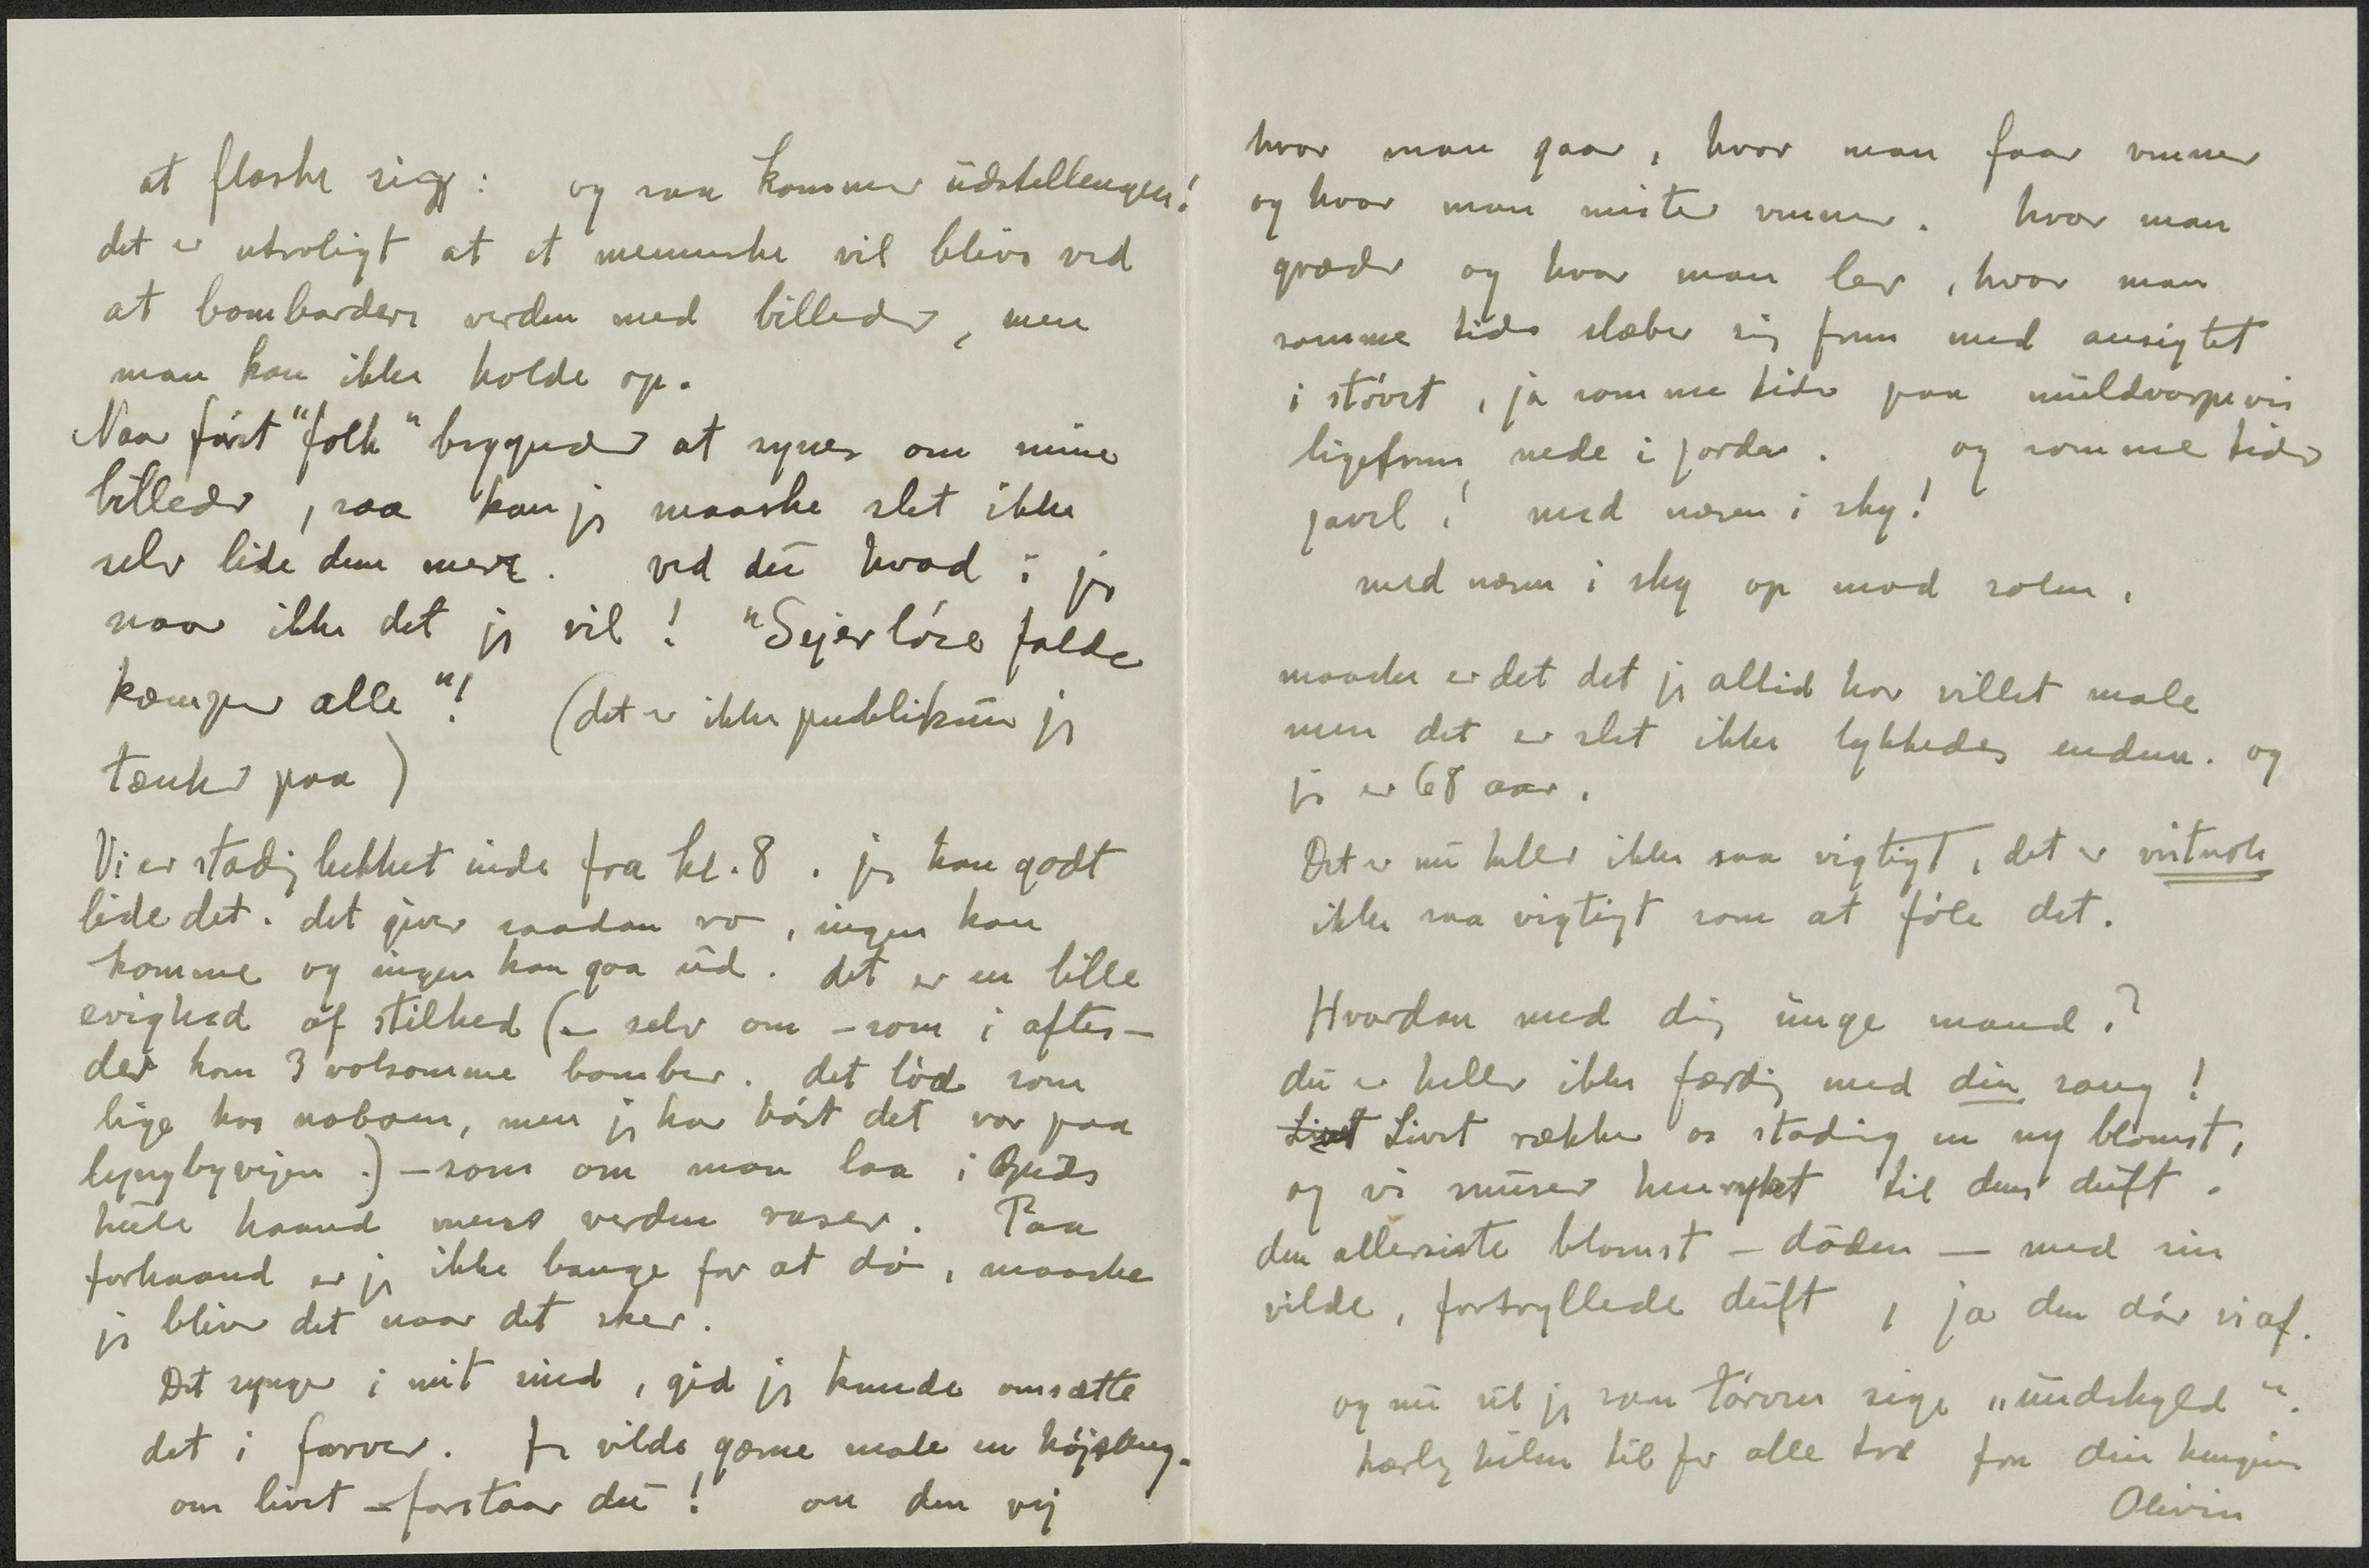 at flaske sig: og saa kommer udstillingen!
det er utroligt at et menneske vil blive ved
at bombardere verden med billeder, men
man kan ikke holde op.
Naar først "folk" begynder at synes om mine
billeder, saa kan jeg maaske slet ikke
selv lide dem mere. ved du hvad: jeg
naar ikke det jeg vil! "Sejerløse falde
kæmper alle"! (det er ikke publikum jeg
tænker paa)
Vi er stadig lukket inde fra kl. 8. jeg kan godt
lide det. det giver saadan ro, ingen kan
komme og ingen kan gaa ud. det er en lille
evighed af stilhed (- selv om - som i aftes -
der kom 3 volsomme bomber. det lød som
lige hos naboen, men jeg har hørt det var paa
lyngbyvejen.) - som om man laa i Guds
hule haand mens verden raser. Paa
forhaand er jeg ikke bange for at dø, maaske
jeg bliver det naar det sker.
Det synger i mit sind, gid jeg kunde omsætte
det i farver. Jeg vilde gærne male en højsang
om livet - forstaar du! om den vej
hvor man gaar, hvor man faar venner
og hvor man mister venner. hvor man
græder og hvor man ler, hvor man
somme tider slæber sig frem med ansigtet
i støvet, ja somme tider paa muldvarpevis
ligefrem nede i jorden. og somme tider
javel! med næsen i sky!
med næsen i sky op mod solen,
maaske er det det jeg altid har villet male
men det er slet ikke lykkedes endnu. og
jeg er 68 aar.
Det er nu heller ikke saa vigtigt, det er vistnok
ikke saa vigtigt som at føle det.
Hvordan med dig unge mand?
du er heller ikke færdig med din sang!
Livet Livet rækker os stadig en ny blomst,
og vi snuser henrykt til dens duft.
den allersiste blomst - døden - med sin
vilde, fortryllede duft, ja den dør vi af.
og nu vil jeg saa tørven sige "undskyld".
kærlig hilsen til jer alle tre fra din hengivne
Olivia